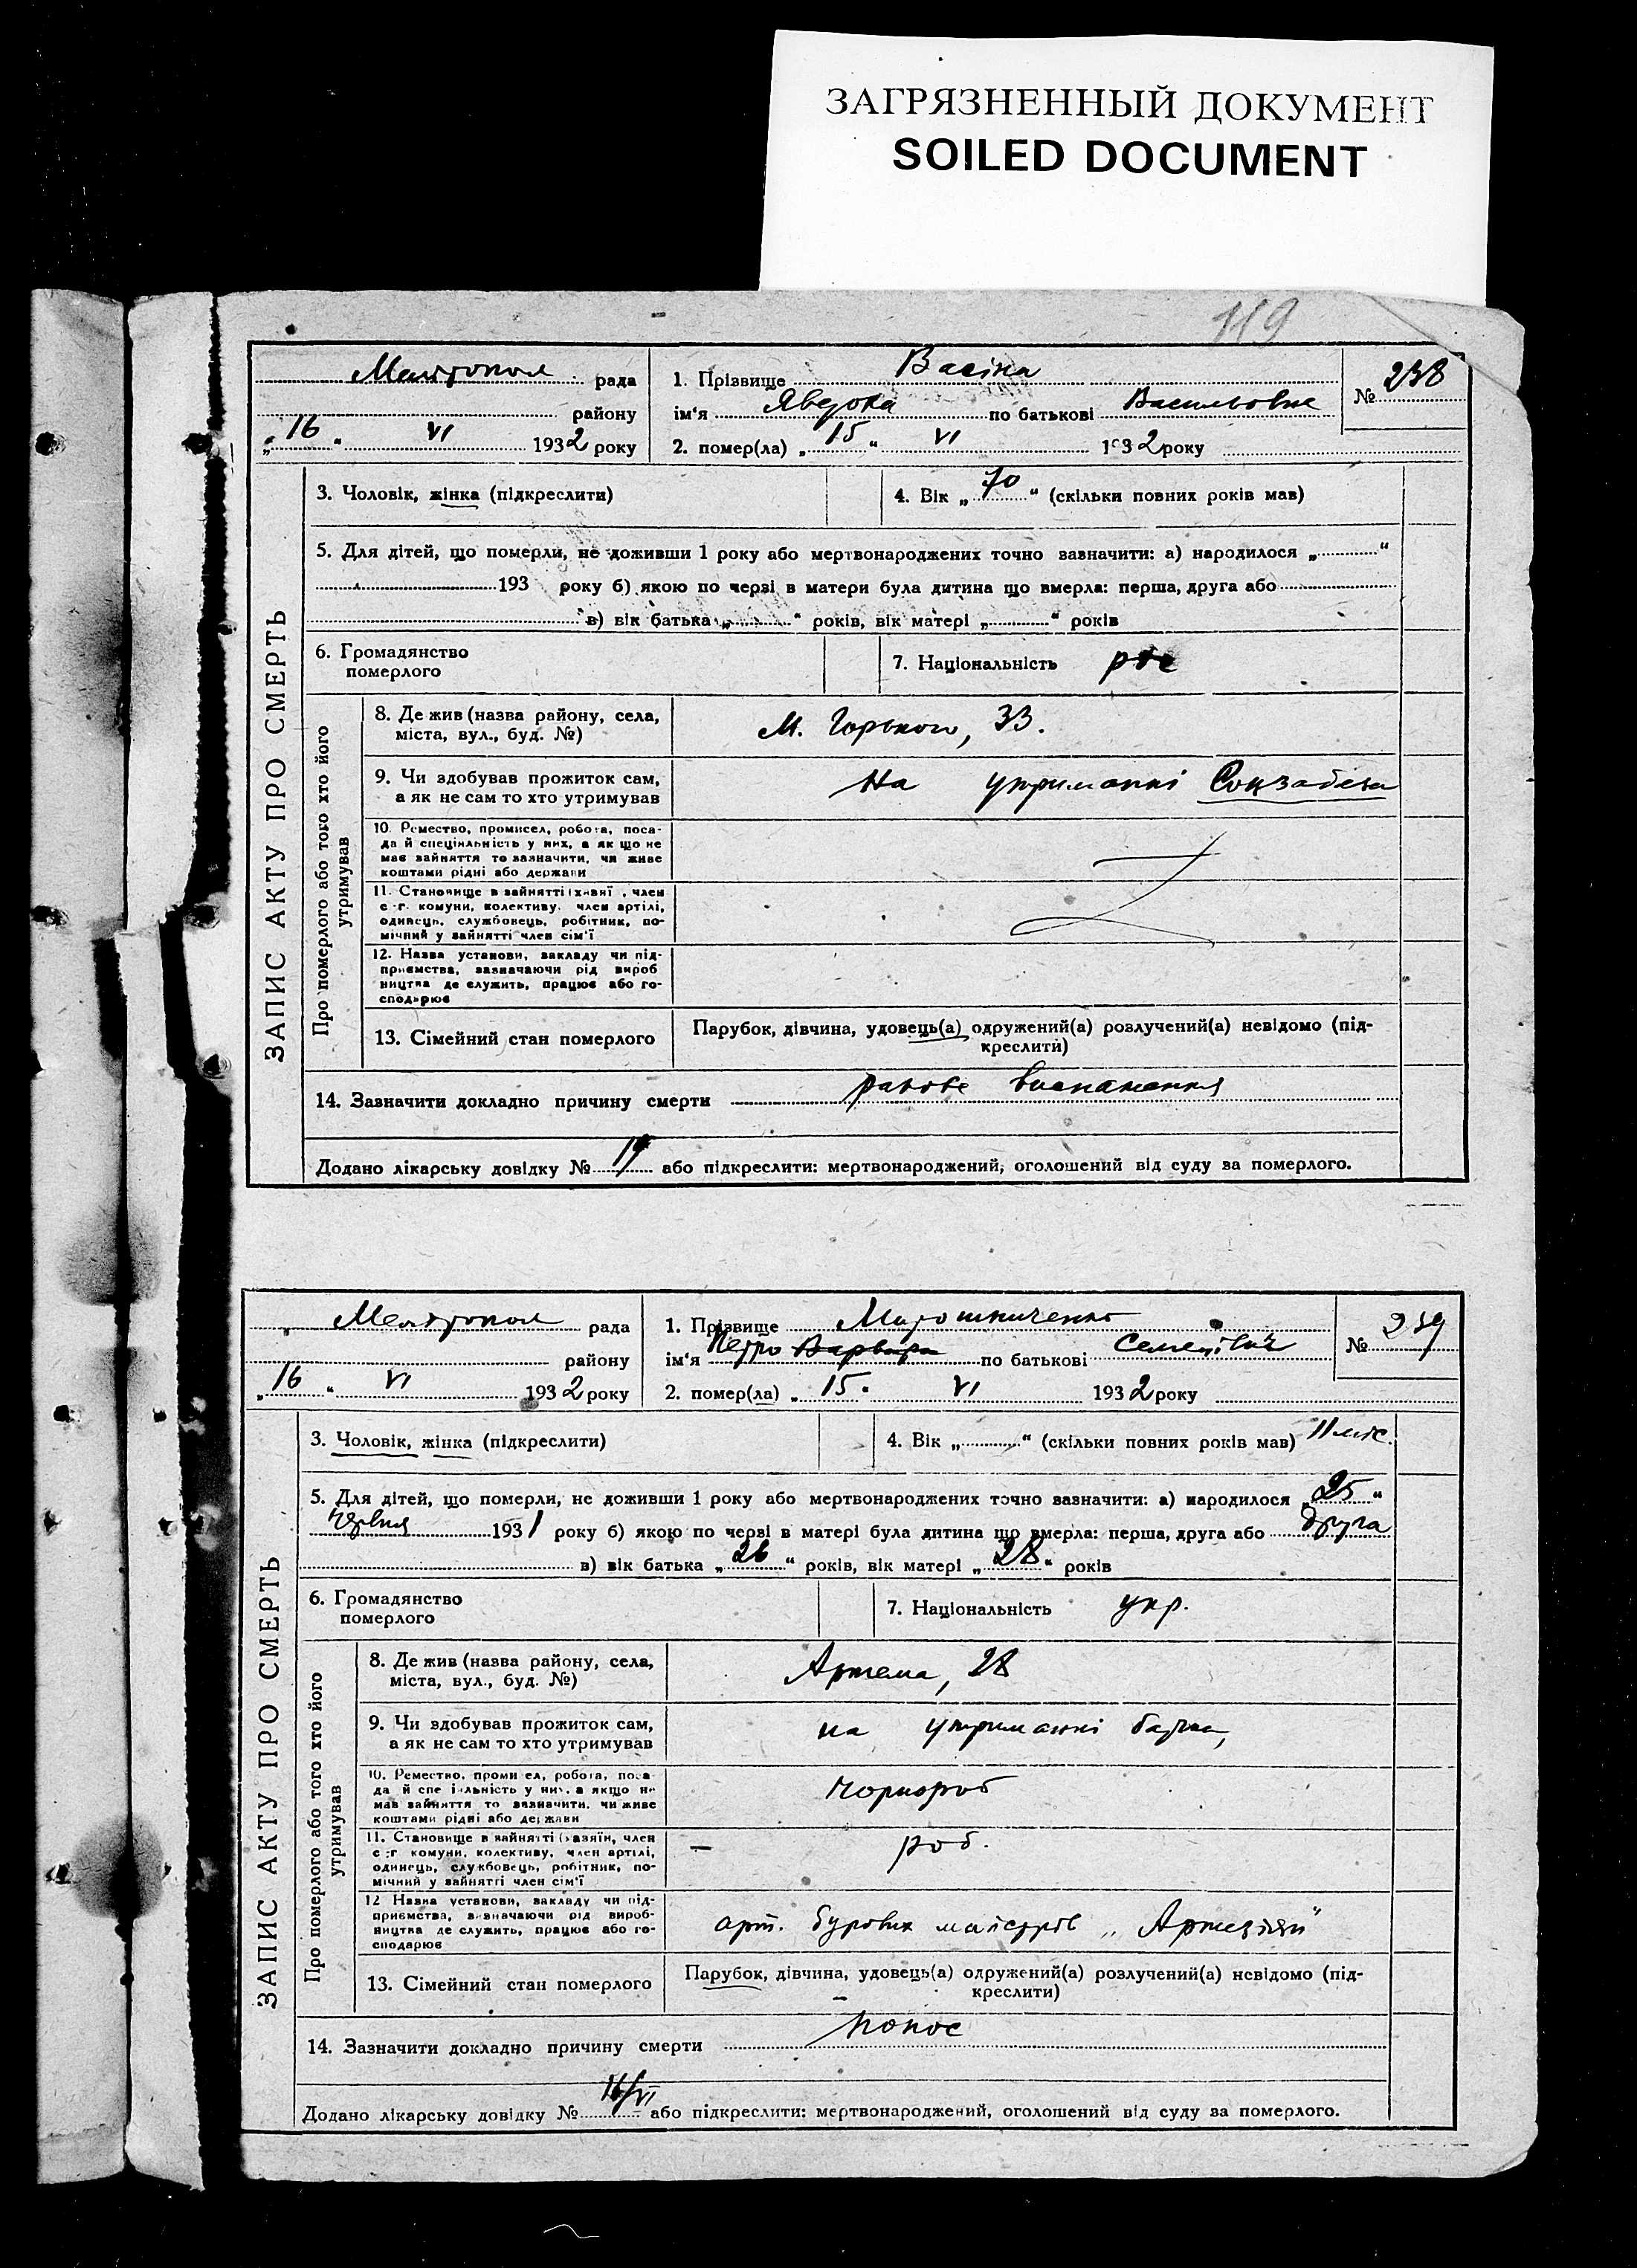 ЗАГРЯЗНЕННЫЙ ДОКУМЕНТ
SOILED DOCUMENT
119
ЗАПИС АКТУ ПРО СМЕРТЬ
Мелітополь рада
району
„16“ VI 1932 року
1. Прізвище Васіна
ім'я Явдоха по батькові Васильовна
2. помер(ла) „15“ VI 1932 року
№ 238
3. Чоловік, жінка (підкреслити)
4. Вік „70“ (скільки повних років мав)
5. Для дітей, що померли, не доживши 1 року або мертвонароджених точно зазначити: а) народилося „ “
193 року б) якою по черзі в матери була дитина що вмерла: перша, друга або
в) вік батька „ “ років, вік матері „ “ років
6. Громадянство
померлого
7. Національність рос
Про померлого або того хто його
утримував
8. Де жив (назва району, села,
міста, вул., буд. №)
М. Горького, 33.
9. Чи здобував прожиток сам,
а як не сам то хто утримував
На утриманні Соцзабеза
10. Ремество, промисел, робота, поса-
да й спеціяльність у них, а як що не
має зайняття то зазначити, чи живе
коштами рідні або держави
11. Становище в зайнятті (хазяї, член
с.-г. комуни, колективу, член артілі,
одинець, службовець, робітник, по-
мічний у зайнятті член сім'ї
12. Назва установи, закладу чи під-
приємства, зазначаючи рід вироб
ництва де служить, працює або го-
сподарює
13. Сімейний стан померлого
Парубок, дівчина, удовець(а) одружений(а) розлучений(а) невідомо (під-
креслити)
14. Зазначити докладно причину смерти ракове виснаження
Додано лікарську довідку № 19 або підкреслити: мертвонароджений, оголошений від суду за померлого.
ЗАПИС АКТУ ПРО СМЕРТЬ
Мелітополь рада
району
„16“ VI 1932 року
1. Прізвище Мирошниченко
ім'я Петро Варвара по батькові Семенівич
2. помер(ла) „15“ VI 1932 року
№ 239
3. Чоловік, жінка (підкреслити)
4. Вік „ “ (скільки повних років мав) 11 міс.
5. Для дітей, що померли, не доживши 1 року або мертвонароджених точно зазначити: а) народилося „25“
червня 1931 року б) якою по черзі в матері була дитина що вмерла: перша, друга або друга
в) вік батька „26“ років, вік матері „28“ років
6. Громадянство
померлого
7. Національність укр.
Про померлого або того хто його
утримував
8. Де жив (назва району, села,
міста, вул., буд. №)
Артема, 28
9. Чи здобував прожиток сам,
а як не сам то хто утримував
на утриманні батька,
10. Ремество, промисел, робота, поса-
да й спеціяльність у них, а якщо не
мав зайняття то зазначити, чи живе
коштами рідні або держави
Чорнороб
11. Становище в зайнятті (хазяїн, член
с.-г комуни, колективу, член артілі,
одинець, службовець, робітник, по-
мічний у зайнятті член сім'ї
— роб.
12 Назва установи, закладу чи під-
приємства, зазначаючи рід вироб-
ництва де служить, працює або го-
сподарює
арт. бурових майстрів „
13. Сімейний стан померлого
Парубок, дівчина, удовець(а) одружений(а) розлучений(а) невідомо (під-
креслити)
14. Зазначити докладно причину смерти понос
Додано лікарську довідку № 16/VI або підкреслити: мертвонароджений, оголошений від суду за померлого.